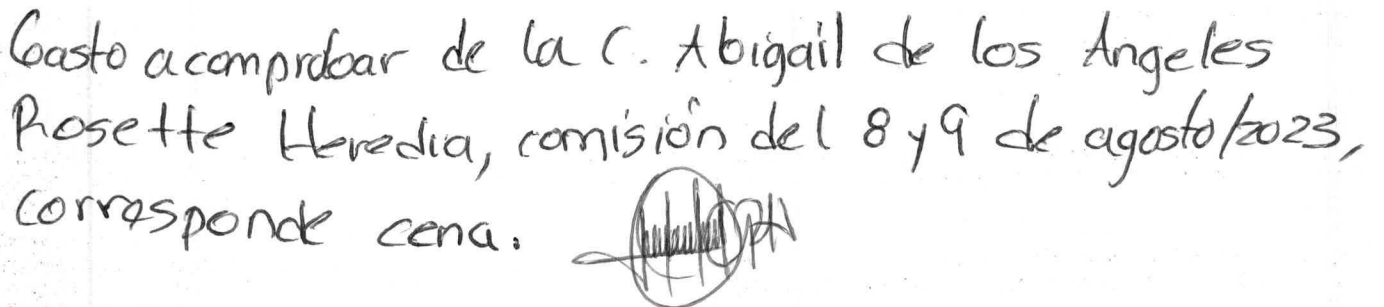 Gasto a comprobar de la C. Abigail de los Angeles
Rosette Heredia, comisión del 8 y 9 de agosto/2023,
corresponde cena.